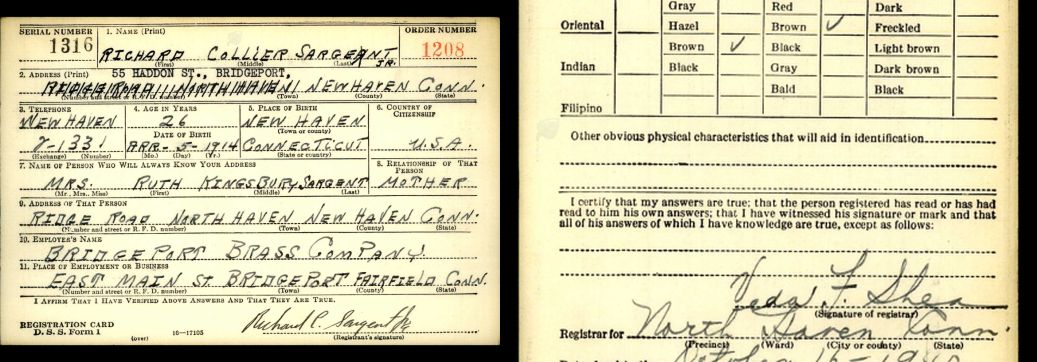 SERIAL NUMBER 1. NAME (Print) ORDER NUMBER
1316 RICHARD COLLIER SARGENT JR. 1208
(First) (Middle) (Last)
2. ADDRESS (Print) 55 HADDON ST., BRIDGEPORT,
RIDGE ROAD NORTH HAVEN NEW HAVEN CONN.
(Number and street or R. F. D. number) (Town) (County) (State)
3. TELEPHONE 4. AGE IN YEARS 5. PLACE OF BIRTH 6. COUNTRY OF CITIZENSHIP
NEW HAVEN 26 NEW HAVEN
DATE OF BIRTH (Town or county)
7-1331 APR- 5- 1914 CONNECTICUT U.S.A.
(Exchange) (Number) (Mo.) (Day) (Yr.) (State or country)
7. NAME OF PERSON WHO WILL ALWAYS KNOW YOUR ADDRESS 8. RELATIONSHIP OF THAT PERSON
MRS. RUTH KINGSBURY SARGENT MOTHER
(Mr., Mrs., Miss) (First) (Middle) (Last)
9. ADDRESS OF THAT PERSON
RIDGE ROAD NORTH HAVEN NEW HAVEN CONN.
(Number and street or R. F. D. number) (Town) (County) (State)
10. EMPLOYER'S NAME
BRIDGEPORT BRASS COMPANY.
11. PLACE OF EMPLOYMENT OR BUSINESS
EAST MAIN ST. BRIDGEPORT FAIRFIELD CONN.
(Number and street or R. F. D. number) (Town) (County) (State)
I AFFIRM THAT I HAVE VERIFIED ABOVE ANSWERS AND THAT THEY ARE TRUE.
REGISTRATION CARD
D. S. S. Form 1 16—17105 Richard C. Sargent Jr
(over) (Registrant's signature)
Gray Red Dark
Oriental Hazel Brown ✓ Freckled
Brown ✓ Black Light brown
Indian Black Gray Dark brown
Bald Black
Filipino
Other obvious physical characteristics that will aid in identification
I certify that my answers are true; that the person registered has read or has had
read to him his own answers; that I have witnessed his signature or mark and that
all of his answers of which I have knowledge are true, except as follows:
Veda F. Shea
(Signature of registrar)
Registrar for North Haven Conn.
(Precinct) (Ward) (City or county) (State)